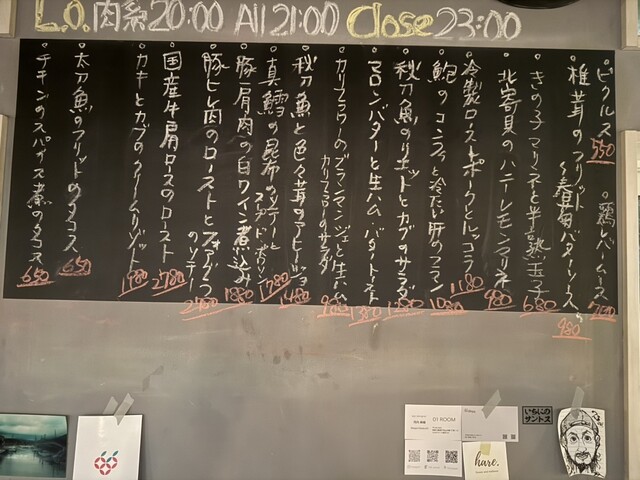 L.O. 肉系 20:00 All 21:00 Close 23:00
ピクルス 350
鶏レバームース
椎茸のフリット 〜春菊バターソース〜 980
きの子マリネと半熟玉子 680
北寄貝のハニーレモンマリネ 980
冷製ローストポークとルッコラ 1180
鮑のコンフィと冷たい肝のフラン
秋刀魚のリエットとカブのサラダ 1280
マロンバターと生ハム バタートースト 1380
カリフラワーのブランマンジェと生ハム カリフラワーのサラダ
秋刀魚と色々茸のアヒージョ 1480
真鱈の昆布のソテーと 1780
豚肩肉の白ワイン煮込み 1880
豚ヒレ肉のローストとフォアグラのソテー 2400
国産牛肩ロースのロースト 2780
カキとカブのクリームリゾット
太刀魚のフリットのタコス 650
チキンのスパイス煮のタコス 650
01 ROOM
hare.
いちにの
サントス